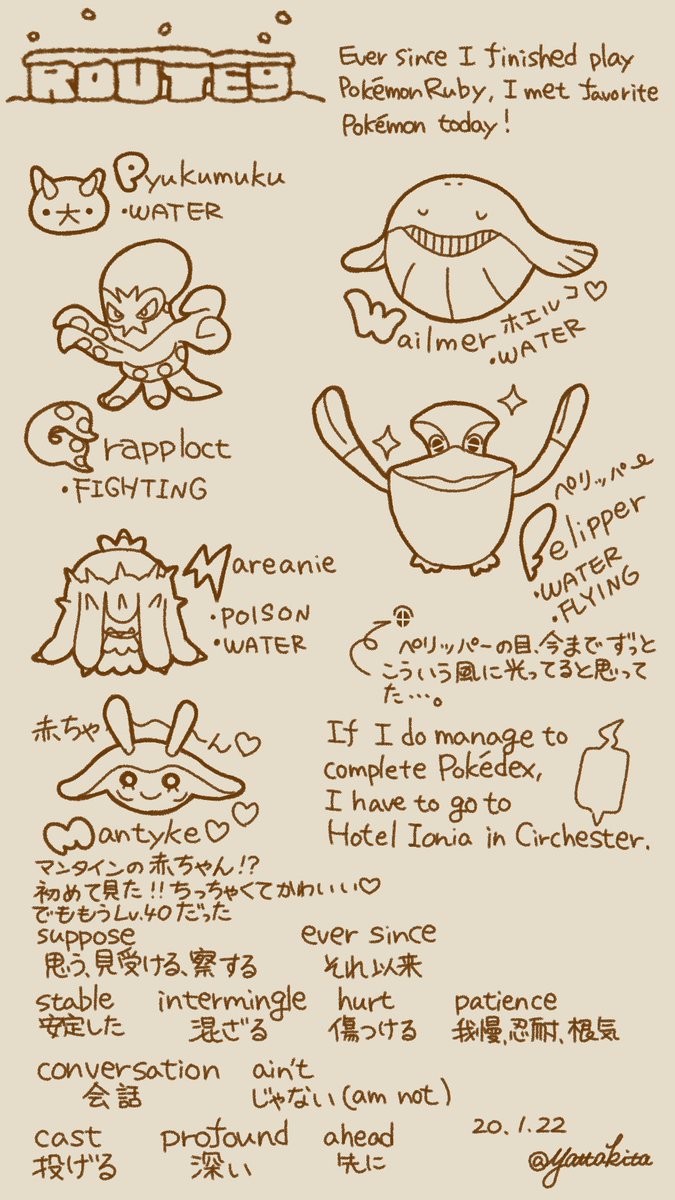 ROUTE9
Ever since I finished play
Pokémon Ruby, I met favorite
Pokémon today!
Pyukumuku
・WATER
大
Wailmer ホエルコ♡
・WATER
Grapploct
・FIGHTING
ペリッパー
Pelipper
・WATER
・FLYING
Mareanie
・POISON
・WATER
ペリッパーの目、今までずっと
こういう風に光ってると思って
た…。
赤ちゃん♡
Mantyke♡♡
マンタインの赤ちゃん!?
初めて見た!!ちっちゃくてかわいい♡
でももうLv.40だった
If I do manage to
complete Pokédex,
I have to go to
Hotel Ionia in Circhester.
suppose ever since
思う、見受ける、察する それ以来
stable intermingle hurt patience
安定した 混ざる 傷つける 我慢、忍耐、根気
conversation ain't
会話 じゃない(am not)
cast profound ahead
投げる 深い 先に
20.1.22
@yattakita